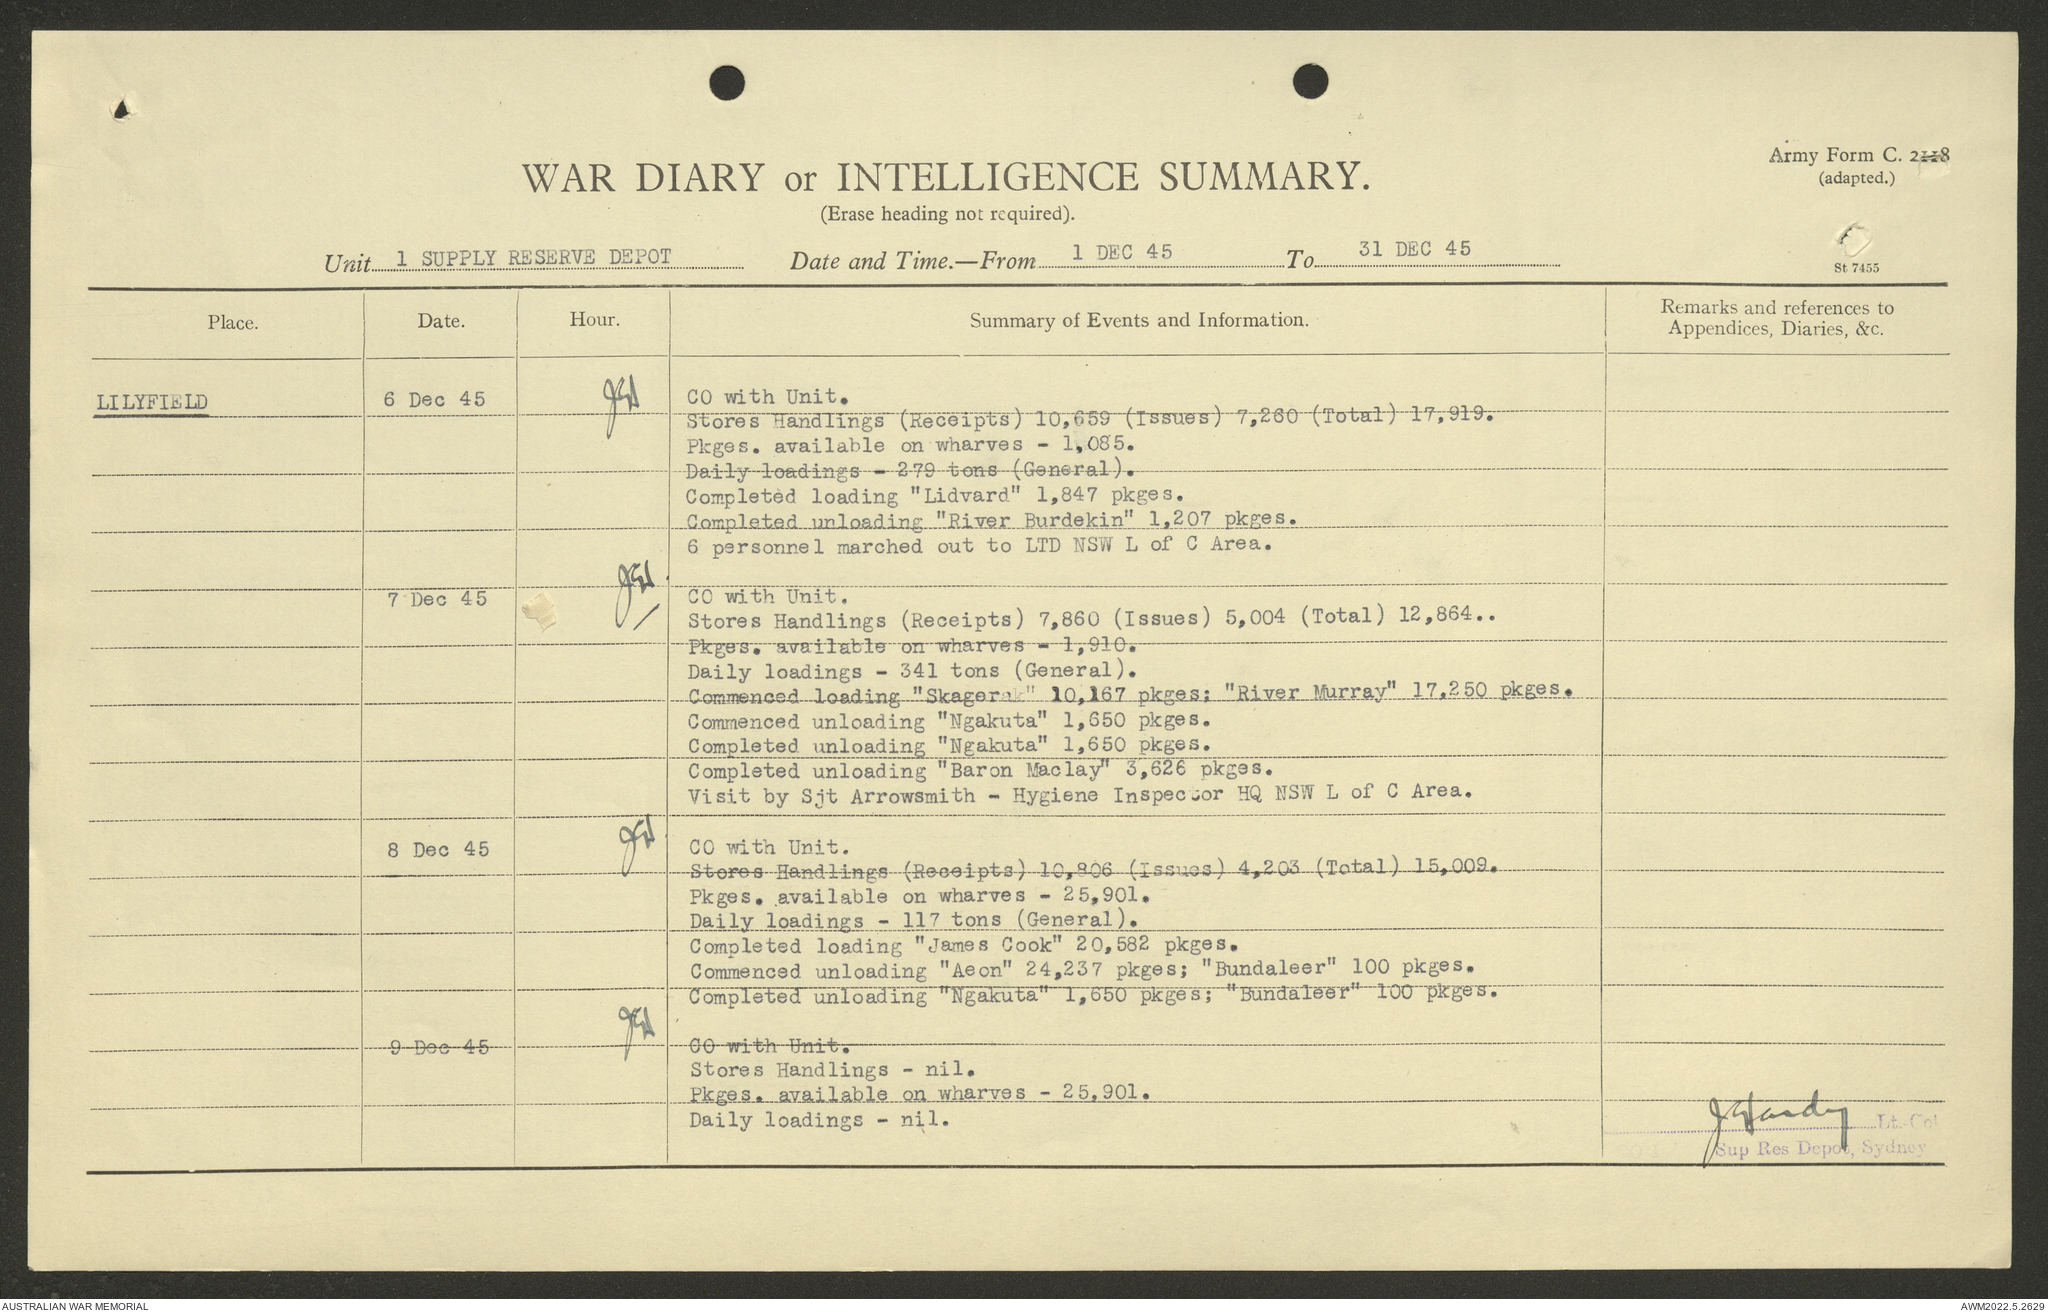 Army Form C. 2118
(adapted.)
WAR DIARY or INTELLIGENCE SUMMARY.
(Erase heading not required).
St 7455
Unit 1 SUPPLY RESERVE DEPOT Date and Time.—From 1 DEC 45 To 31 DEC 45
Place. Date. Hour. Summary of Events and Information. Remarks and references to
Appendices, Diaries, &c.
LILYFIELD 6 Dec 45 JEH CO with Unit.
Stores Handlings (Receipts) 10,659 (Issues) 7,260 (Total) 17,919.
Pkges. available on wharves - 1,085.
Daily loadings - 279 tons (General).
Completed loading "Lidvard" 1,847 pkges.
Completed unloading "River Burdekin" 1,207 pkges.
6 personnel marched out to LTD NSW L of C Area.
7 Dec 45 JEH CO with Unit.
Stores Handlings (Receipts) 7,860 (Issues) 5,004 (Total) 12,864..
Pkges. available on wharves - 1,910.
Daily loadings - 341 tons (General).
Commenced loading "Skagerak" 10,167 pkges; "River Murray" 17,250 pkges.
Commenced unloading "Ngakuta" 1,650 pkges.
Completed unloading "Ngakuta" 1,650 pkges.
Completed unloading "Baron Maclay" 3,626 pkges.
Visit by Sjt Arrowsmith - Hygiene Inspector HQ NSW L of C Area.
8 Dec 45 JEH CO with Unit.
Stores Handlings (Receipts) 10,806 (Issues) 4,203 (Total) 15,009.
Pkges. available on wharves - 25,901.
Daily loadings - 117 tons (General).
Completed loading "James Cook" 20,582 pkges.
Commenced unloading "Aeon" 24,237 pkges; "Bundaleer" 100 pkges.
Completed unloading "Ngakuta" 1,650 pkges; "Bundaleer" 100 pkges.
9 Dec 45 JEH CO with Unit.
Stores Handlings - nil.
Pkges. available on wharves - 25,901.
Daily loadings - nil.
J E Hardy Lt-Col
Sup Res Depot, Sydney
AUSTRALIAN WAR MEMORIAL AWM2022.5.2629